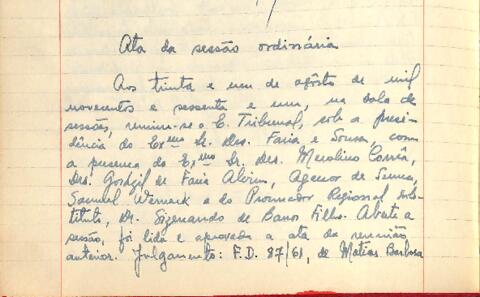 Ata da sessão ordinária
Aos trinta e um de agôsto de mil
novecentos e sessenta e um, na sala de
sessões, reuniu-se o E. Tribunal, sob a presi-
dência do Exmo Sr. Des. Faria e Sousa, com
a presença do Exmo Sr. Des. Merolino Corrêa,
Drs. Gordgil de Faria Alvim, Agenor de Senna,
Samuel Werneck e do Procurador Regional subs-
tituto, Dr. Sizenando de Barros Filho. Aberta a
sessão, foi lida e aprovada a ata da reunião
anterior. Julgamento: F.D. 87/61, de Matias Barbosa